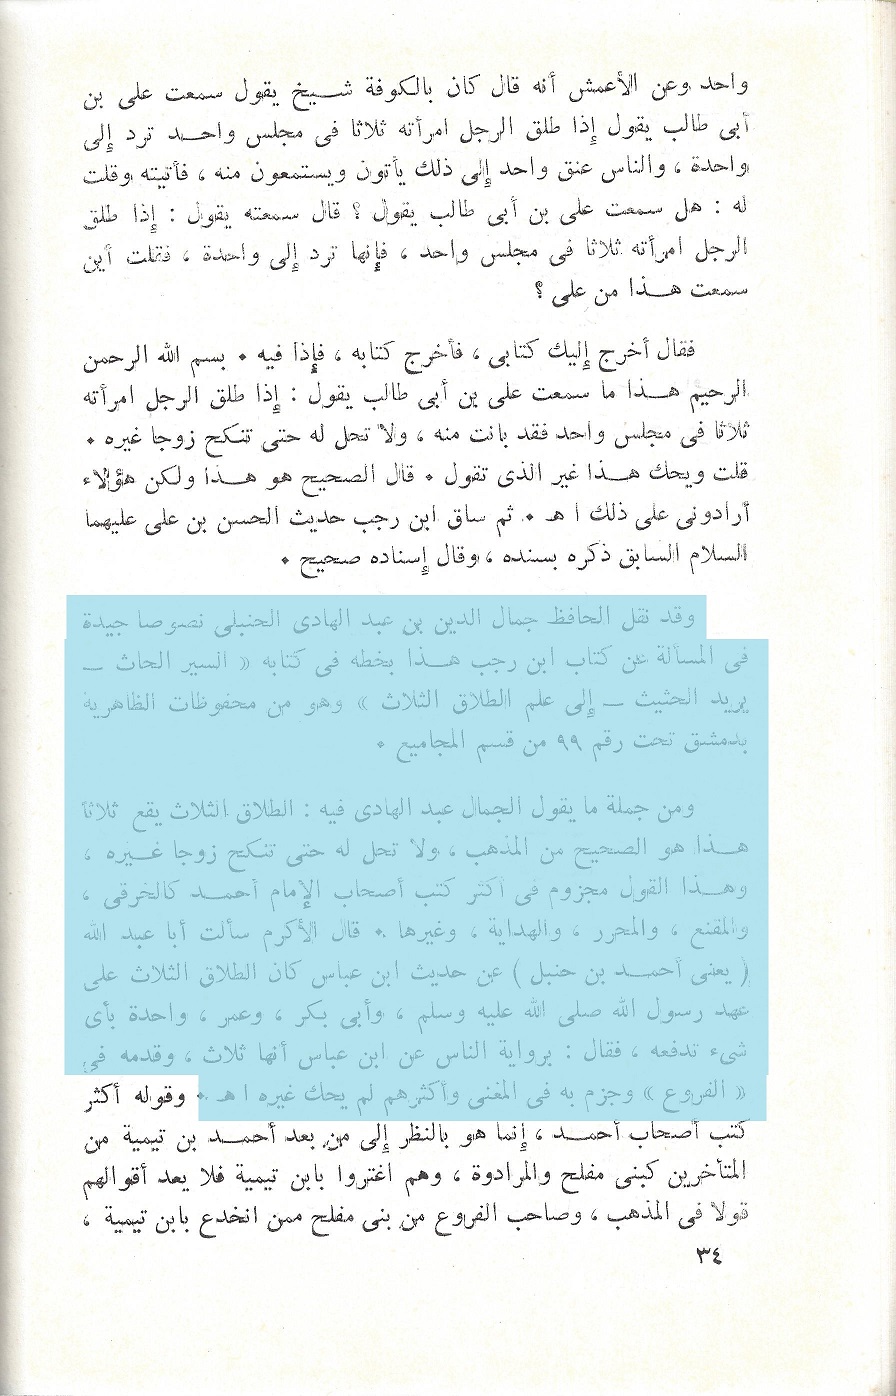 واحد وعن الأعمش أنه قال كان بالكوفة شـيخ يقول سمعت على بن
أبى طالب يقول إذا طلق الرجل امرأته ثلاثا فى مجلس واحـد ترد إلى
واحدة ، والناس عنق واحد إلى ذلك يأتون ويستمعون منه ، فأتيته وقلت
له : هل سمعت على بن أبى طالب يقول ؟ قال سمعته يقول : إذا طلق
الرجل امرأته ثلاثا فى مجلس واحد ، فإنها ترد إلى واحدة ، فقلت أين
سمعت هـذا من على ؟
فقال أخرج إليك كتابى ، فأخرج كتابه ، فإذا فيه • بسم الله الرحمن
الرحيم هـذا ما سمعت على بن أبى طالب يقول : إذا طلق الرجل امرأته
ثلاثا فى مجلس واحد فقد بانت منه ، ولا تحل له حتى تنكح زوجا غيره •
قلت ويحك هـذا غير الذى تقول • قال الصحيح هو هـذا ولكن هؤلاء
أرادونى على ذلك ا هـ • ثم ساق ابن رجب حديث الحسن بن على عليهما
السلام السابق ذكره بسنده ، وقال إسناده صحيح •
وقد نقل الحافظ جمال الدين بن عبد الهادى الحنبلى نصوصا جيدة
فى المسألة عن كتاب ابن رجب هـذا بخطه فى كتابه « السير الحاث ــ
يريد الحثيث ــ إلى علم الطلاق الثلاث » وهو من محفوظات الظاهرية
بدمشق تحت رقم ٩٩ من قسم المجاميع •
ومن جملة ما يقول الجمال عبد الهادى فيه : الطلاق الثلاث يقع ثلاثا
هـذا هو الصحيح من المذهب ، ولا تحل له حتى تنكح زوجا غـيره ،
وهـذا القول مجزوم فى أكثر كتب أصحاب الإمام أحمـد كالخرقى ،
والمقنع ، والمحرر ، والهداية ، وغيرها • قال الأكرم سألت أبا عبد الله
( يعنى أحمـد بن حنبل ) عن حديث ابن عباس كان الطلاق الثلاث على
عهد رسول الله صلى الله عليه وسلم ، وأبى بكر ، وعمر ، واحدة بأى
شىء تدفعه ، فقال : برواية الناس عن ابن عباس أنها ثلاث ، وقدمه فى
« الفروع » وجزم به فى المغنى وأكثرهم لم يحك غيره ا هـ • وقوله أكثر
كتب أصحاب أحمـد ، إنما هو بالنظر إلى من بعد أحمـد بن تيمية من
المتأخرين كبنى مفلح والمرادوة ، وهم اغتروا بابن تيمية فلا يعد أقوالهم
قولا فى المذهب ، وصاحب الفروع من بنى مفلح ممن انخدع بابن تيمية ،
٣٤